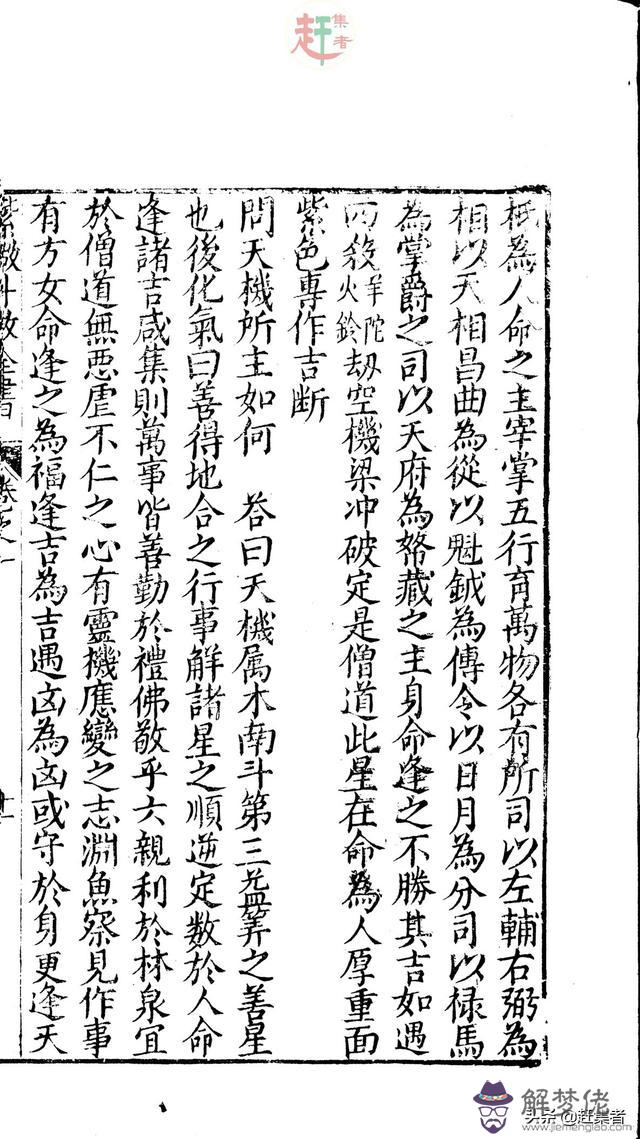 赶集者
秪為人命之主宰掌五行育萬物各有所司以左輔右弼為
相以天相昌曲為從以魁鉞為傳令以日月為分司以禄馬
為掌爵之司以天府為帑藏之主身命逢之不勝其吉如遇
四殺羊陀火鈴劫空機梁冲破定是僧道此星在命為人厚重面
紫色專作吉斷
問天機所主如何 荅曰天機属木南斗第三益筭之善星
也後化氣曰善得地合之行事解諸星之順逆定数於人命
逢諸吉咸集則萬事皆善勤於禮佛敬乎六親利於林泉宜
於僧道無惡虐不仁之心有靈機應變之志淵魚察見作事
有方女命逢之為福逢吉為吉遇凶為凶或守於身更逢天
紫微斗数全書 卷之一 十一
解梦佬
www.jiemenglao.com
头条@赶集者